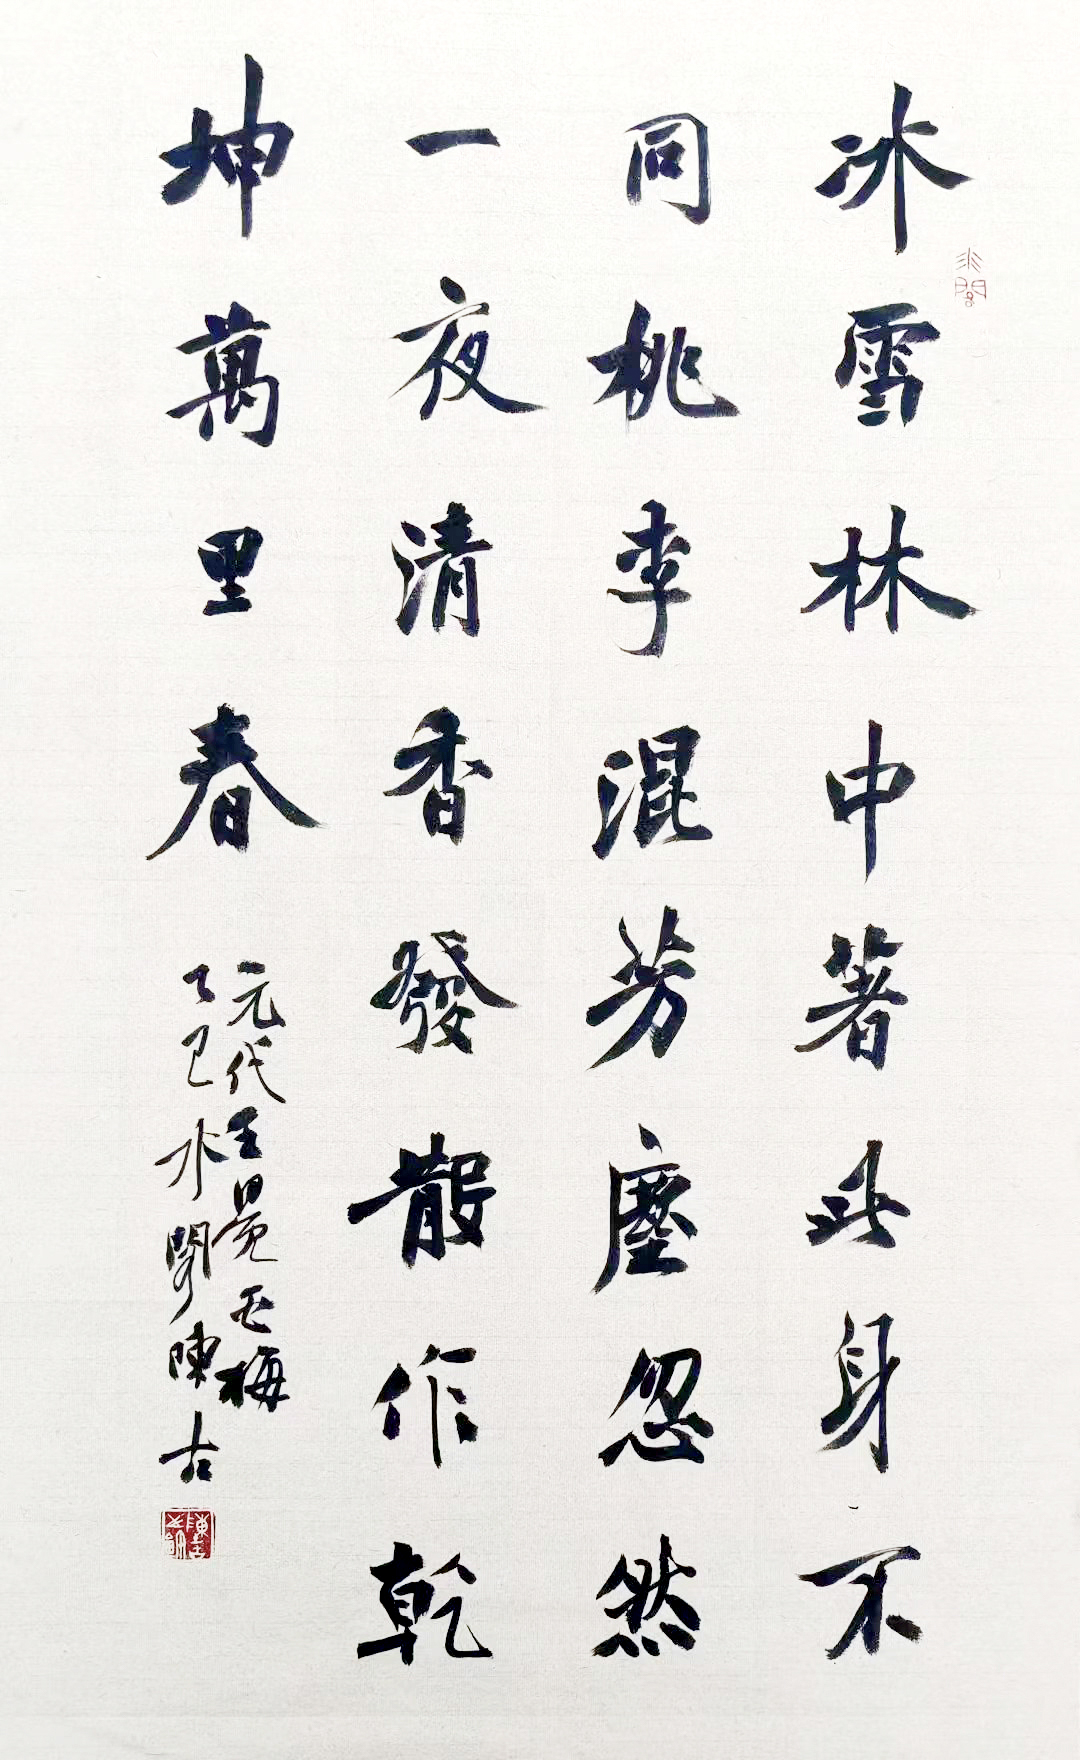 冰雪林中著此身不
同桃李混芳塵忽然
一夜清香發散作乾
坤萬里春
元代王冕白梅
乙巳水閣陳古